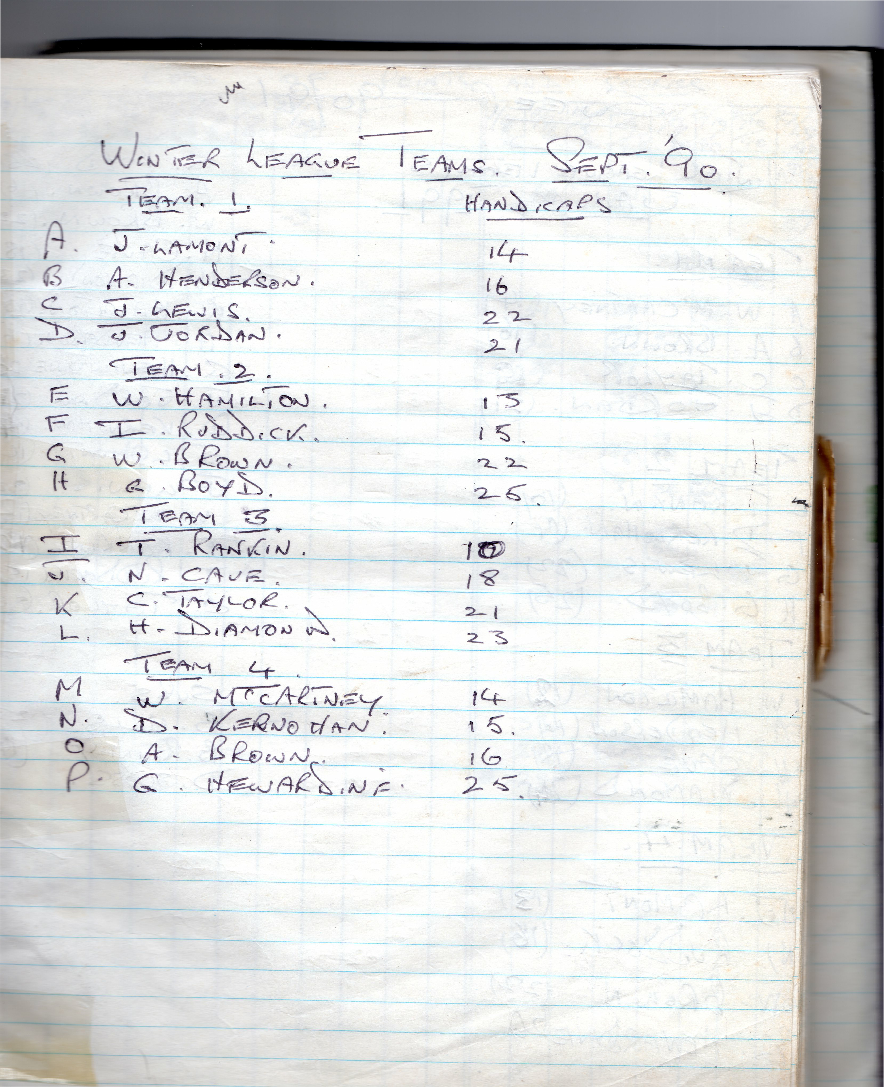 WINTER LEAGUE TEAMS. SEPT. '90.
TEAM. 1. HANDICAPS
A. J. LAMONT. 14
B A. HENDERSON. 16
C J. LEWIS. 22
D. J. JORDAN. 21
TEAM. 2.
E W. HAMILTON. 13
F I. RUDDICK. 15.
G W. BROWN. 22
H G BOYD. 25.
TEAM 3.
I T. RANKIN.
J. N. CAVE. 18
K C. TAYLOR. 21
L. H. DIAMOND. 23
TEAM 4.
M W. MCCARTNEY 14
N. D. KERNOHAN. 15.
O. A. BROWN. 16
P. G. HEWARDINE. 25.